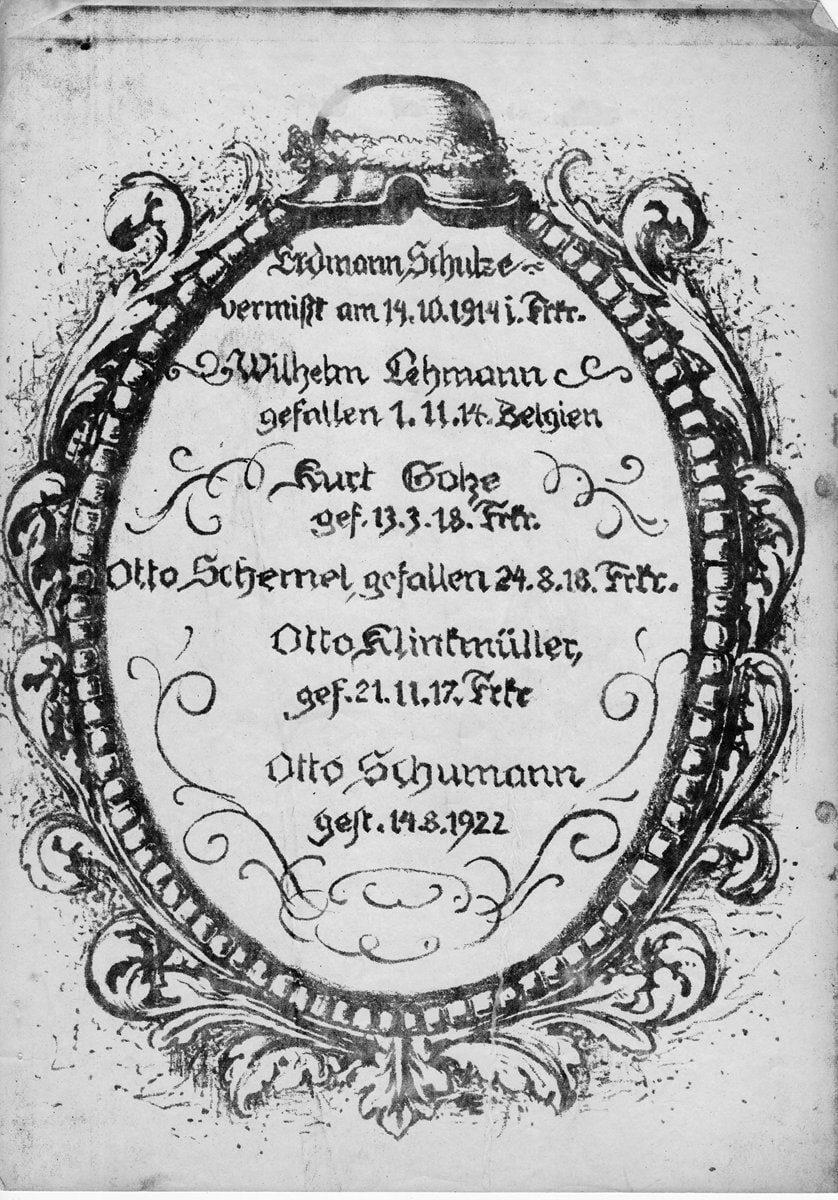 Erdmann Schulze
vermißt am 14.10.1914 i. Frkr.
Wilhelm Lehmann
gefallen 1.11.14. Belgien
Kurt Golze
gef. 13.3.18. Frkr.
Otto Schemel, gefallen 24.8.18. Frkr.
Otto Klinkmüller,
gef. 21.11.17. Frkr
Otto Schumann
gest. 14.8.1922